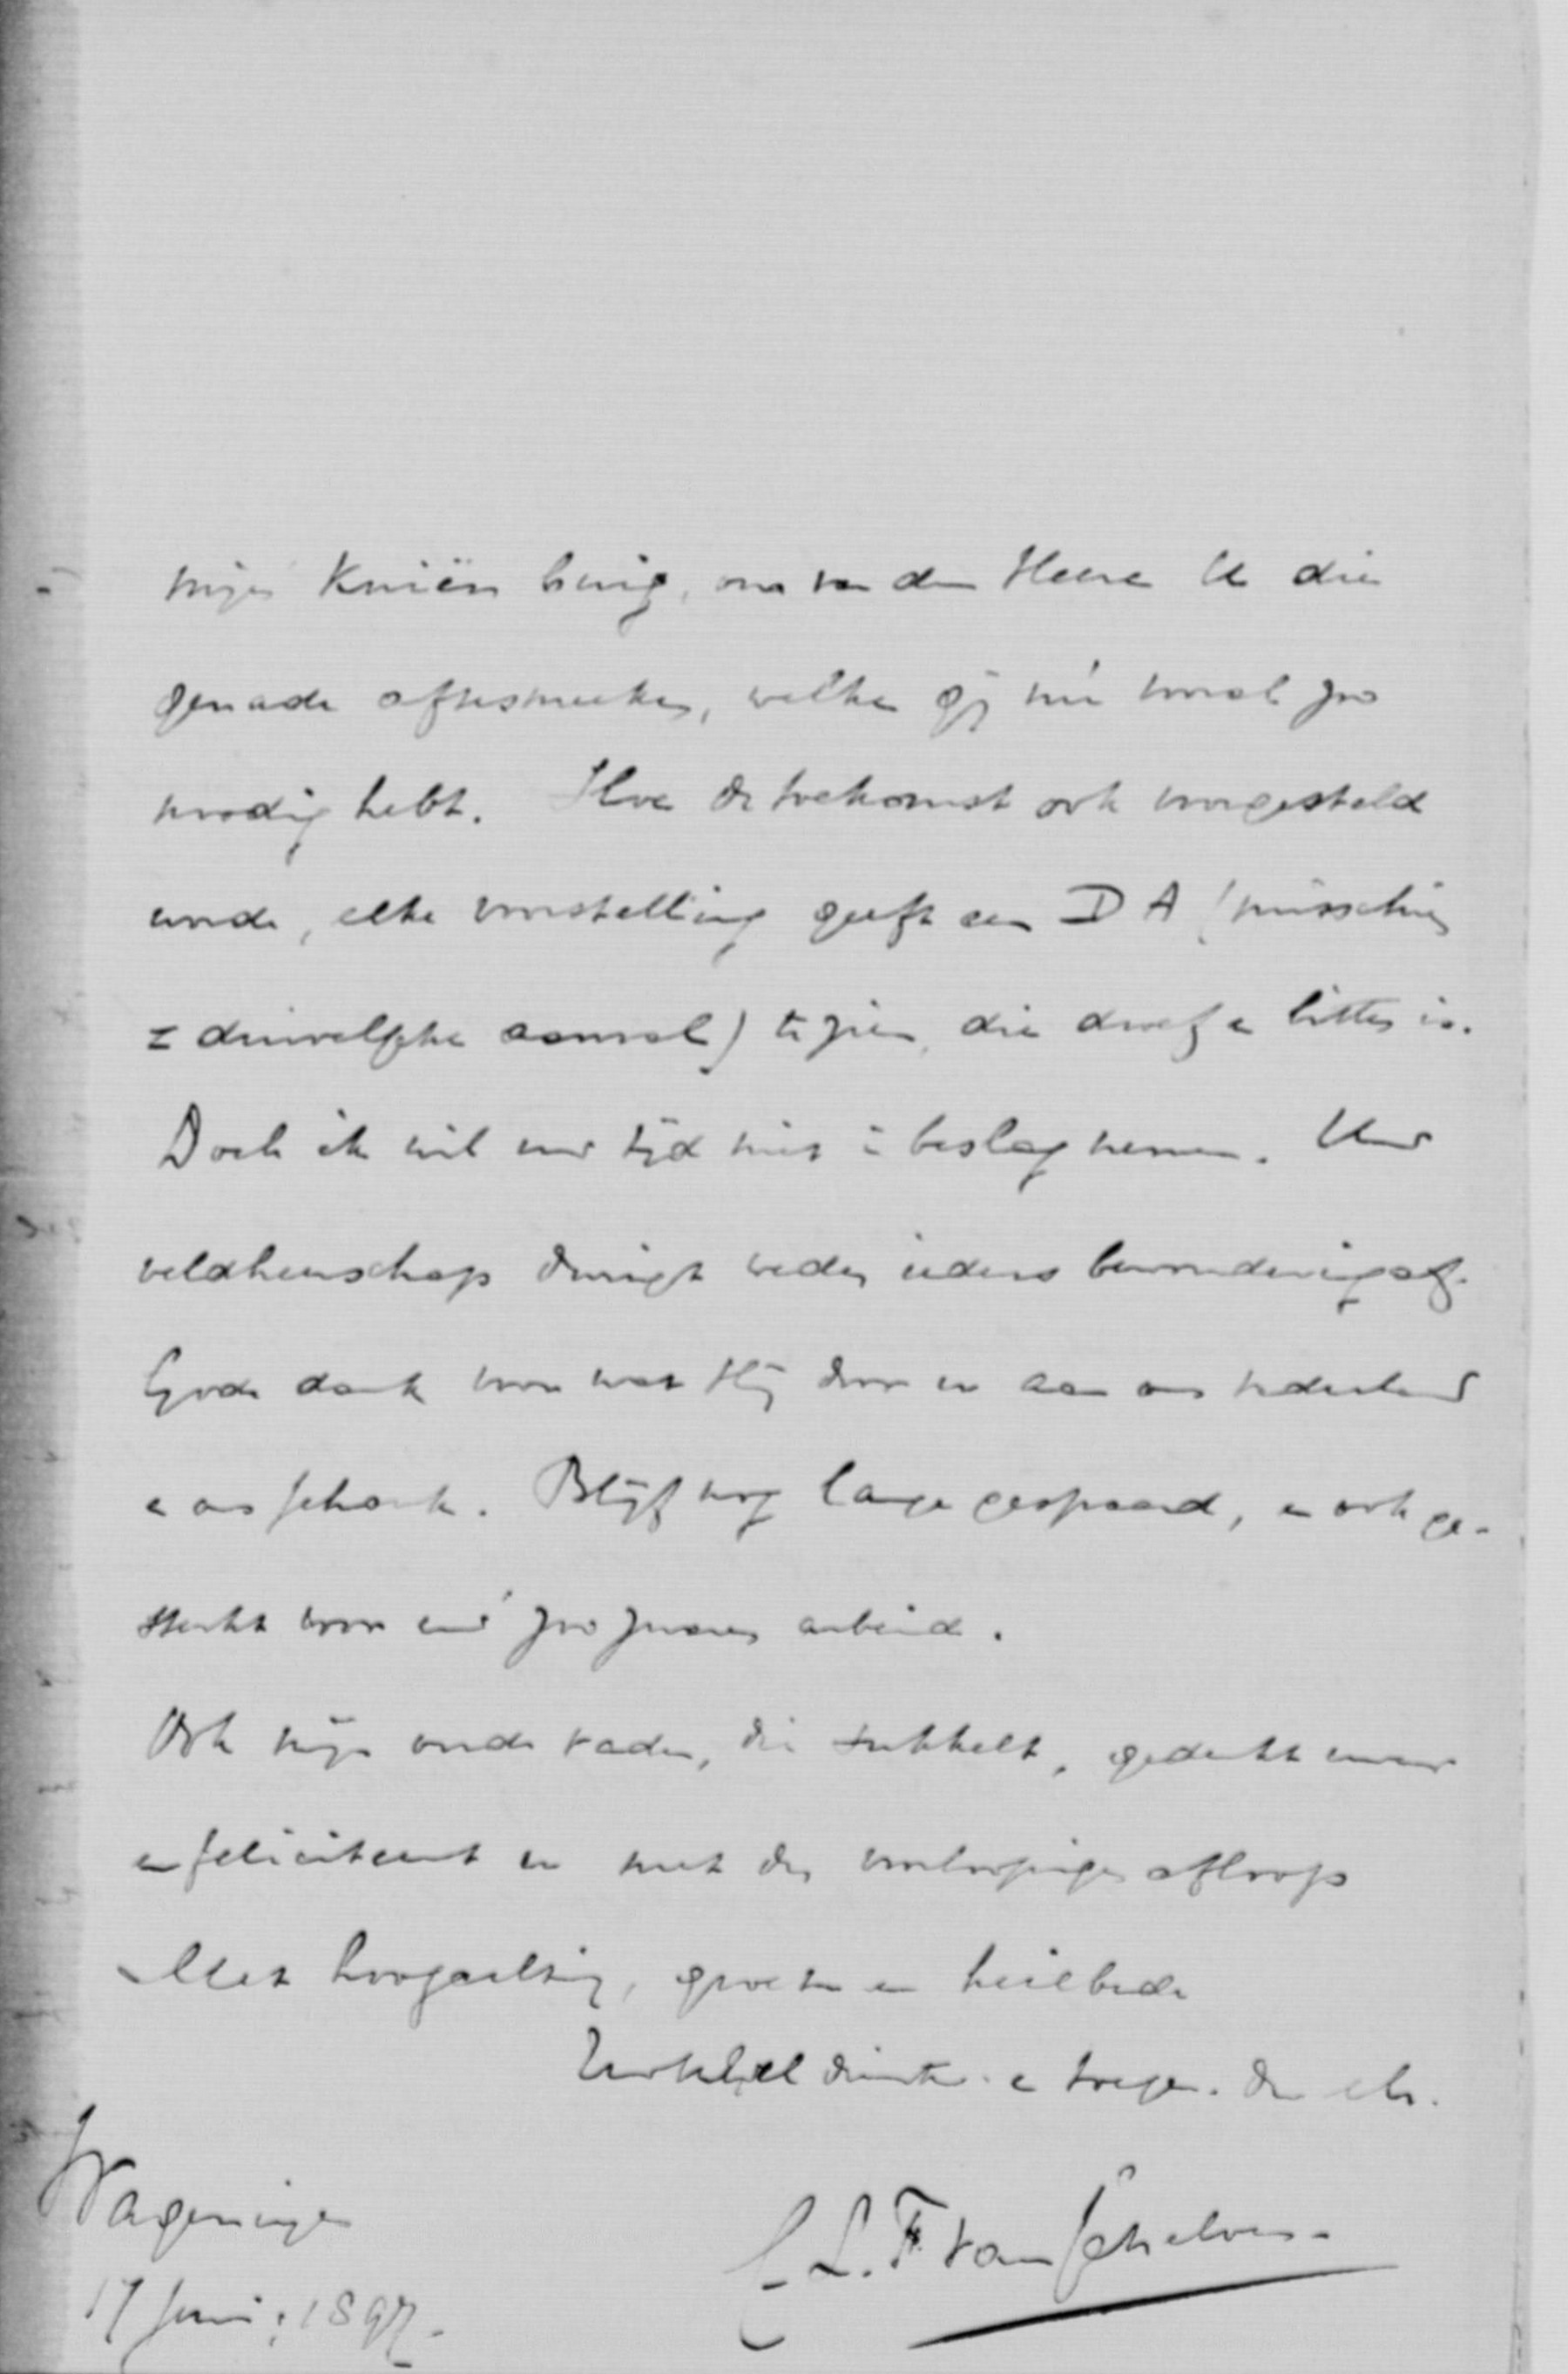 mijn Kniën buig, om van den Heere U die
genade af te smeeken, welke gij nu vooral zoo
noodig hebt. Hoe de toekomst ook voorgesteld
worde, elke voorstelling geeft een D A (misschien
duivelsche aanval) te zien, die droef en bitter is.
Doch ik wil uw tijd niet in beslag nemen. Uw
veldheerschap dwingt weder ieders bewondering af.
Gode dank voor wat Hij door u aan ons vaderland
en ons schonk. Blijf nog lange gespaard, en ook ge-
sterkt voor uw' zoo zwaren arbeid.
Ook mijn oude vader, die sukkelt, gedenkt uwer
en feliciteert u met den voorloopigen afloop
Met hoogachting, groeten en heilbede
dienstw. en toegen. dr en br.
Wageningen
17 Juni 1897.
L. F. van Schelven